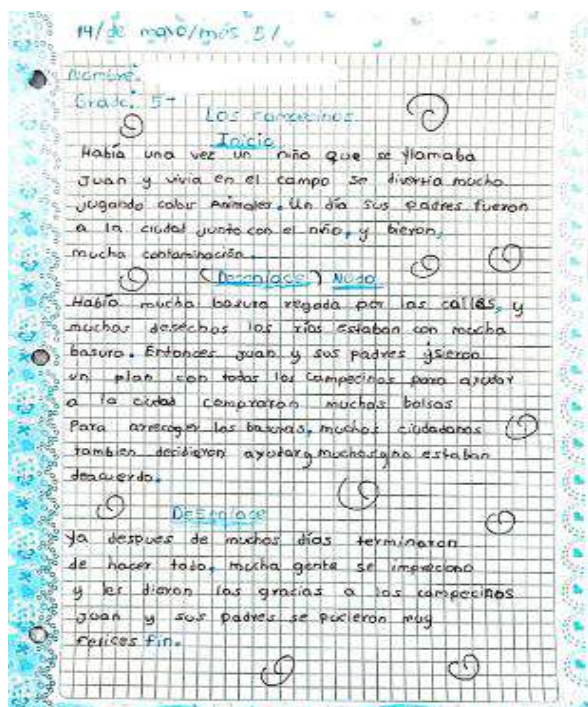 14/de mayo/mas 5/
Nombre:
Grado: 5-
Los campecinos
Inicio
Había una vez un niño que se llamaba
Juan y vivia en el campo se divertia mucho
jugando Animales. Un día sus padres fueron
a la ciudad junto con el niño, y bieron,
mucha contaminación.
(Desenlace) Nudo
Había mucha basura regada por las calles, y
muchos desechos los rios estaban con mucha
basura. Entonces Juan y sus padres
un plan con todos los campecinos para ayudar
a la ciudad compraron muchas bolsas
Para arrecoger las basuras, muchos ciudadanos
tambien decidieron ayudar y muchos no estaban
deacuerdo.
Desenlace
Ya despues de muchos días terminaron
de hacer todo, mucha gente se impreciono
y les dieron las gracias a los campecinos
Juan y sus padres se pucieron muy
Felices fin.